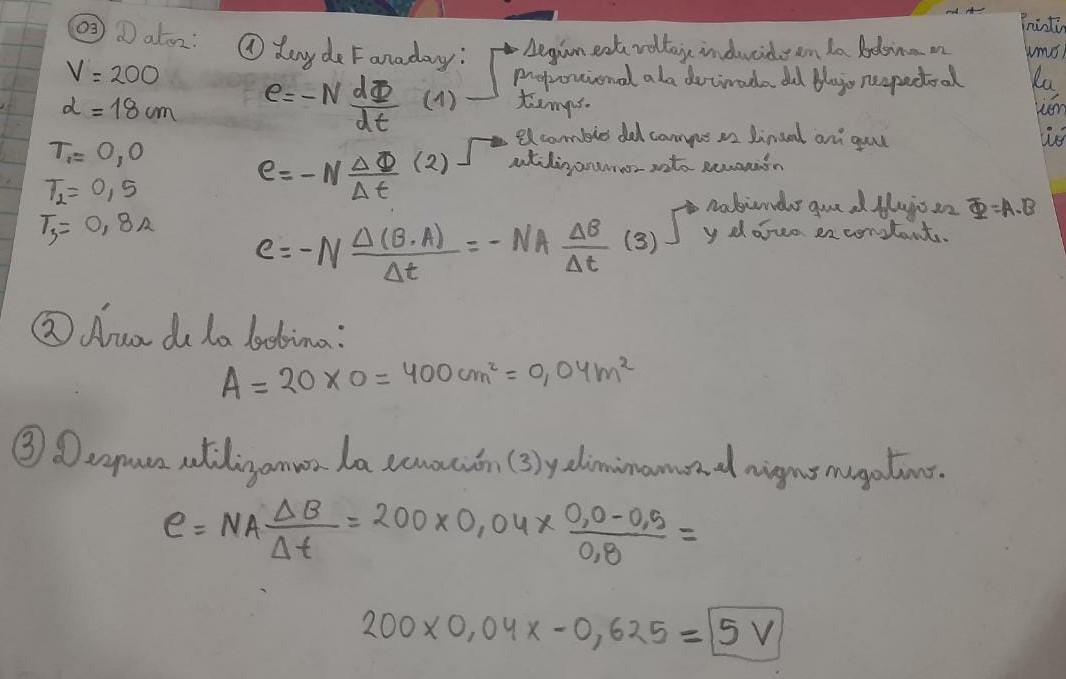 03 Datos:
V = 200
d = 18 cm
T₁= 0,0
T₂= 0,5
T₃= 0,8s
① Ley de Faraday:
e = -N dΦ/dt (1)
Según este voltaje inducido en la bobina es
proporcional a la derivada del flujo respecto al
tiempo.
e = -N ΔΦ/Δt (2)
El cambio del campo es lineal asi que
utilizaremos esta ecuación
e = -N Δ(B.A)/Δt = - NA ΔB/Δt (3)
sabiendo que el flujo es Φ=A.B
y el área es constante.
② Área de la bobina:
A = 20 x 0 = 400 cm² = 0,04 m²
③ Despues utilizamos la ecuación (3) y eliminamos el signo negativo.
e = NA ΔB/Δt = 200 x 0,04 x 0,0 - 0,5/0,8 =
200 x 0,04 x - 0,625 = 5 V
la